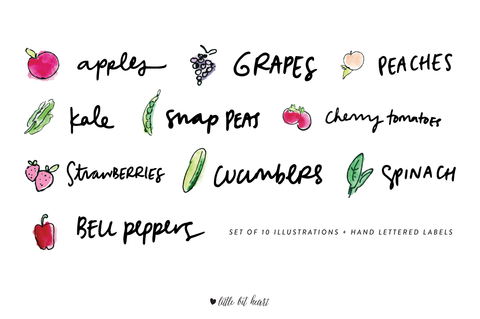 apples GRAPES PEACHES
kale snap PEAS Cherry tomatoes
StrawBERRIES cucumbers SPINACH
BELL peppers SET OF 10 ILLUSTRATIONS + HAND LETTERED LABELS
little bit heart